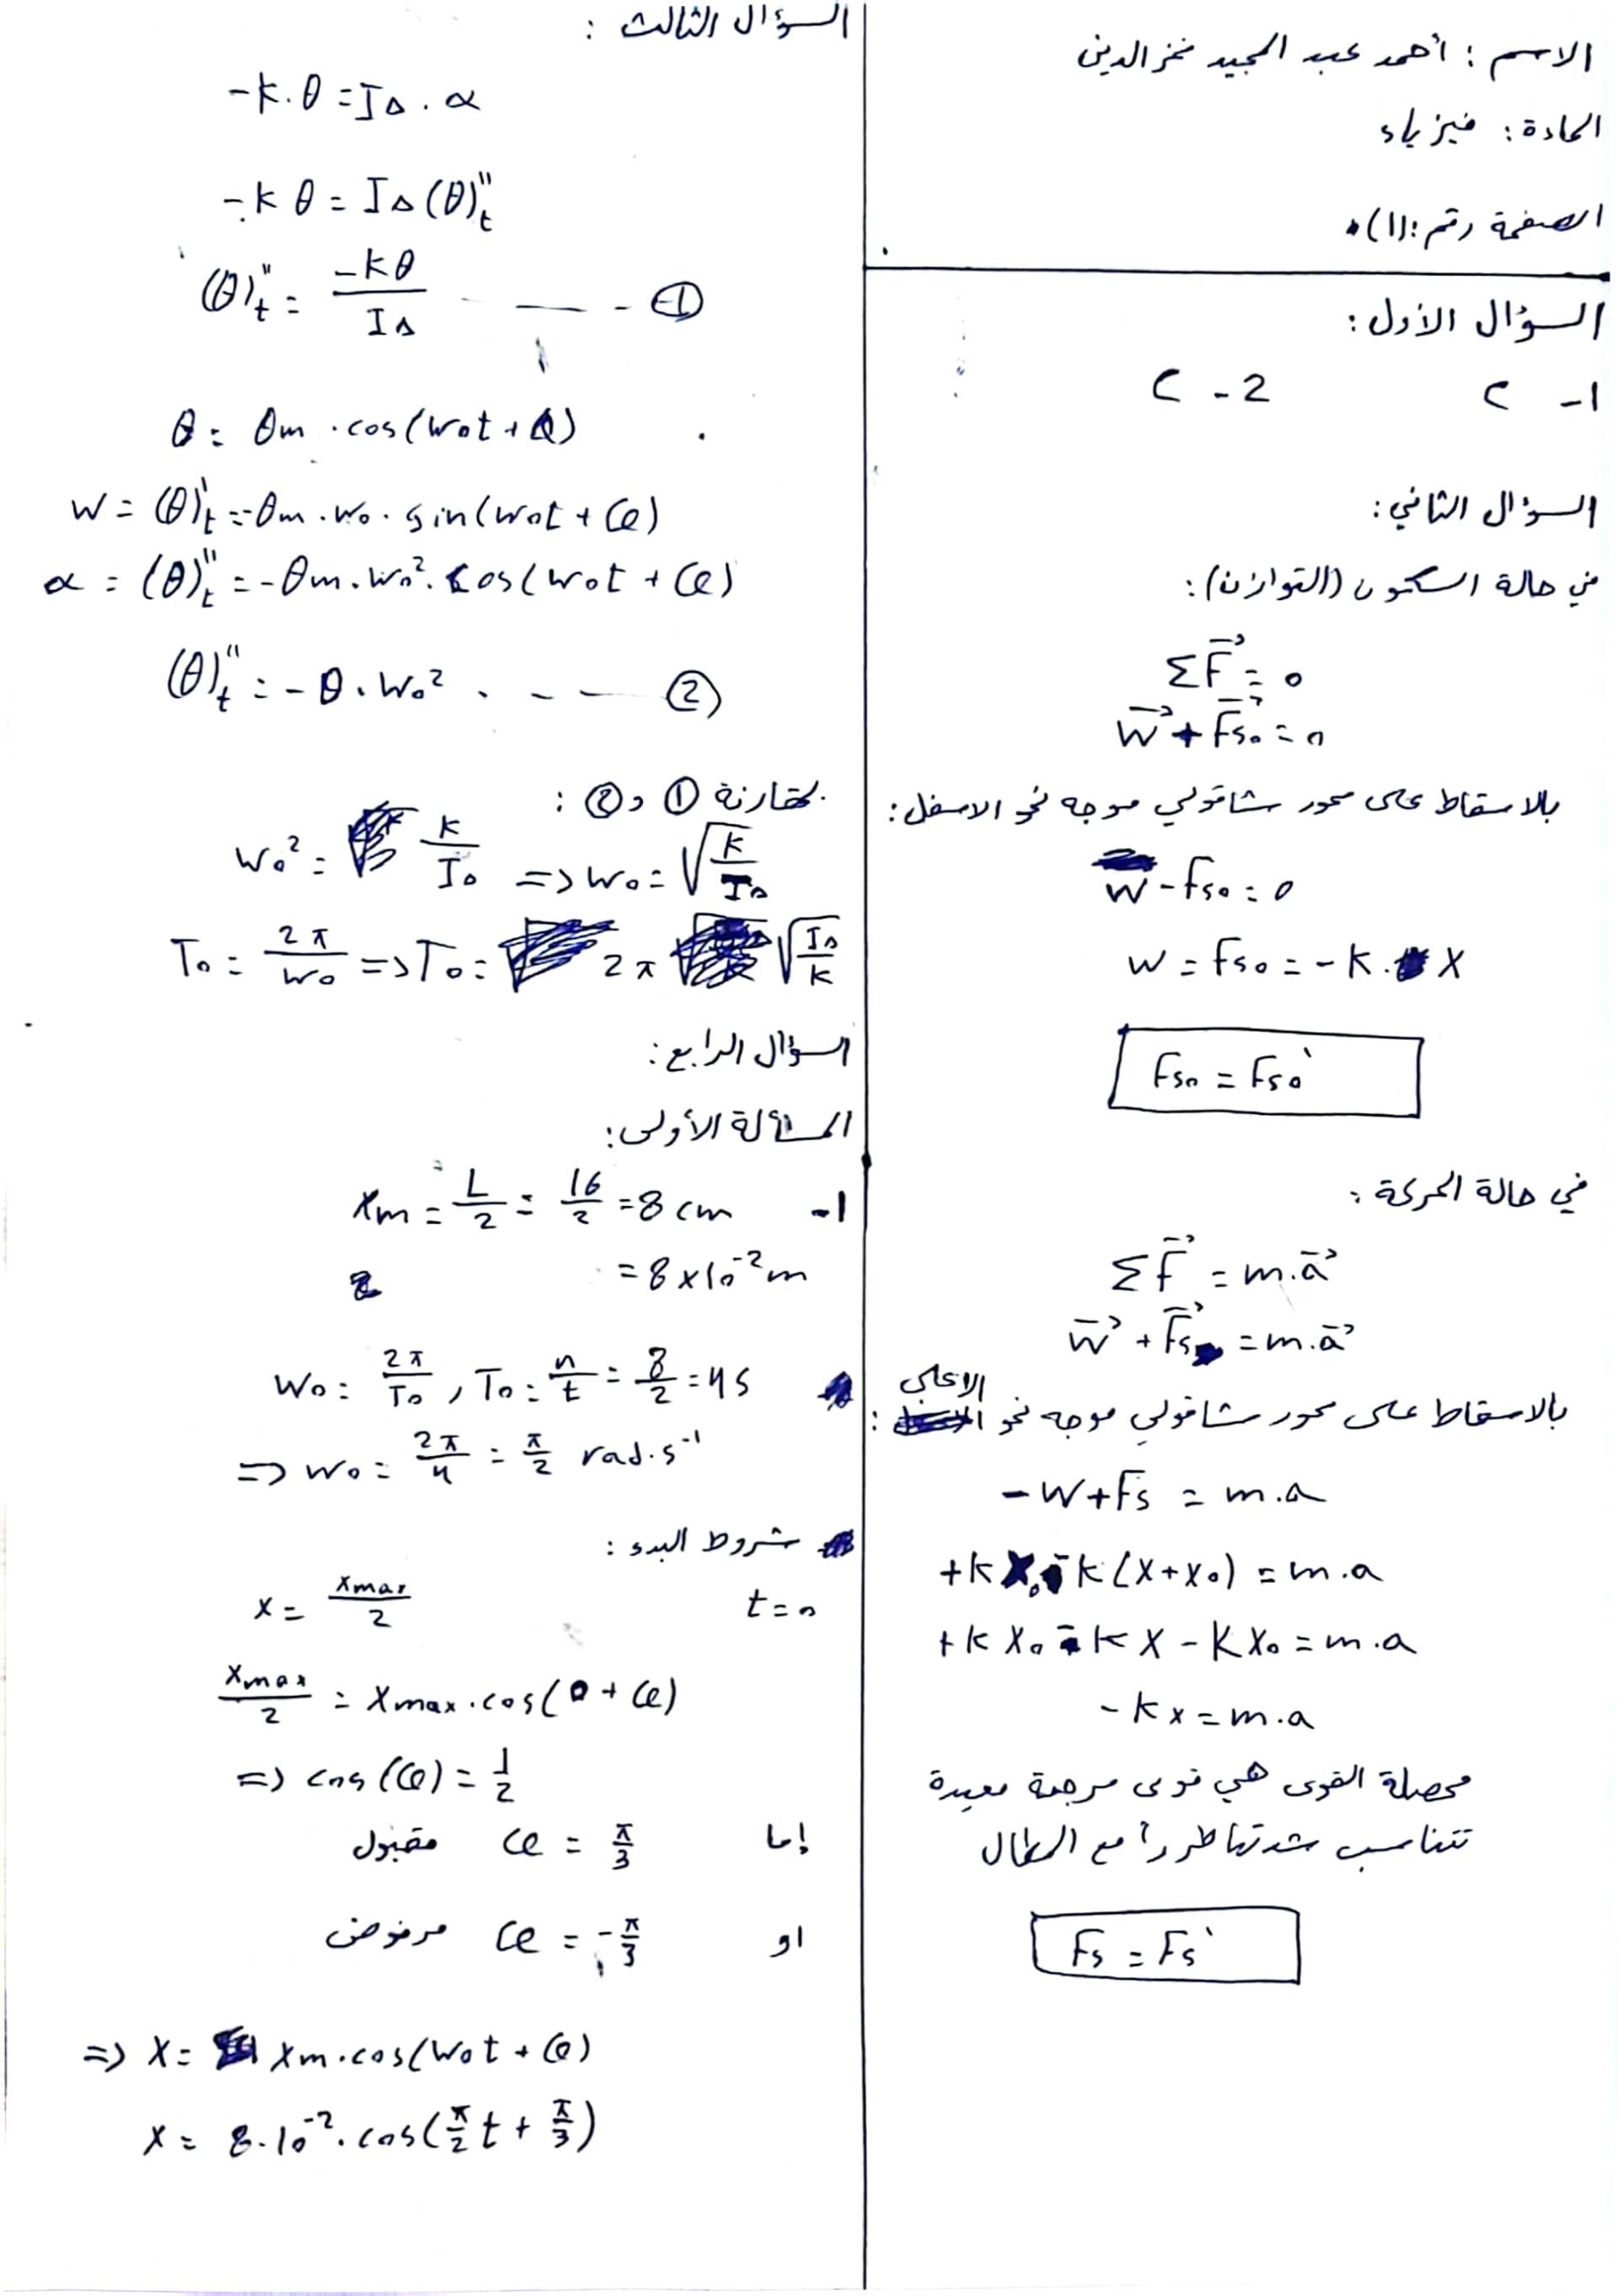 الاسم : أحمد عبد المجيد فخر الدين
المادة : فيزياء
الصفحة رقم : (1).
السؤال الأول :
1- C    2- C
السؤال الثاني :
في حالة السكون (التوازن) :
ΣF⃗ = 0
W⃗ + F⃗s₀ = 0
بالاسقاط على محور شاقولي موجه نحو الاسفل :
W - Fs₀ = 0
W = Fs₀ = -K . X
Fs₀ = Fs₀'
في حالة الحركة :
ΣF⃗ = m.a⃗
W⃗ + F⃗s = m.a⃗
بالاسقاط على محور شاقولي موجه نحو الاعلى :
-W + Fs = m.a
+k X₀ - k(X+X₀) = m.a
+k X₀ - k X - K X₀ = m.a
-k x = m.a
محصلة القوى هي قوى مرجعة معيدة
تتناسب شدتها طرداً مع المطال
Fs = Fs'
السؤال الثالث :
-k.θ = I∆ . α
-k θ = I∆ (θ)''t
(θ)''t = -kθ / I∆ - - - ①
θ = θm . cos(W₀t + φ)
W = (θ)'t = -θm . W₀ . sin(W₀t + φ)
α = (θ)''t = -θm . W₀² . cos(W₀t + φ)
(θ)''t = -θ . W₀² . - - - ②
بمقارنة ① و ② :
W₀² = k / I∆ => W₀ = √(k / I∆)
T₀ = 2π / W₀ => T₀ = 2π √(I∆ / k)
السؤال الرابع :
المسألة الأولى :
1- Xm = L/2 = 16/2 = 8 cm
= 8 x 10⁻² m
W₀ = 2π/T₀ , T₀ = n/t = 8/2 = 4 s
=> W₀ = 2π/4 = π/2 rad.s⁻¹
شروط البدء :
t = 0    x = Xmax/2
Xmax/2 = Xmax . cos(0 + φ)
=> cos(φ) = 1/2
إما φ = π/3 مقبول
او φ = -π/3 مرفوض
=> X = Xm . cos(W₀t + φ)
X = 8.10⁻² . cos(π/2 t + π/3)